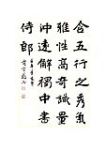 含五行之秀氣
雅性高奇識量
沖遠解褐中書
侍郎